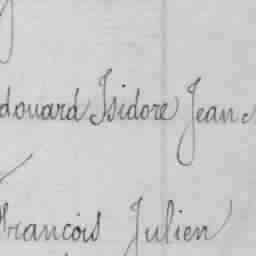 douard Isidore Jean
François Julien